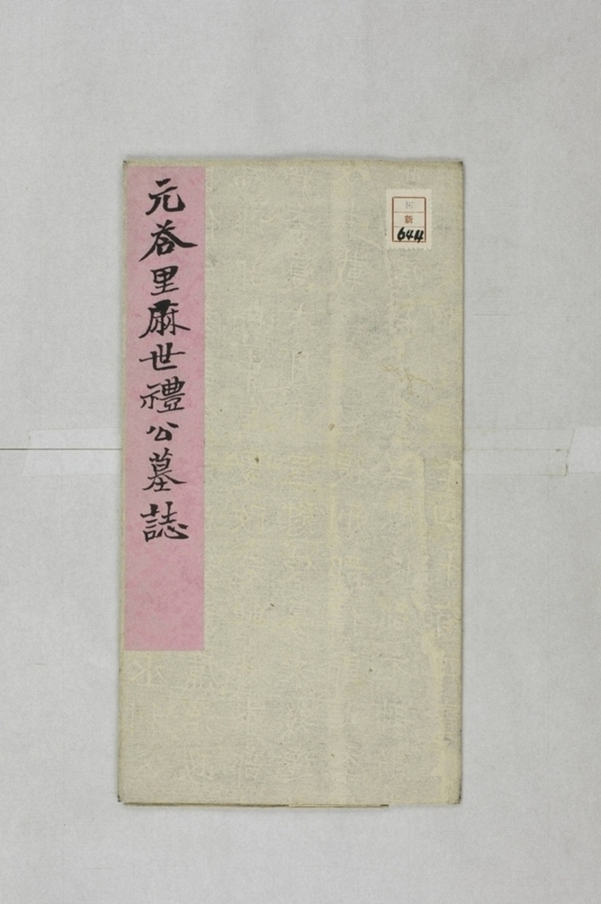 元荅里麻世禮公墓誌
新
644